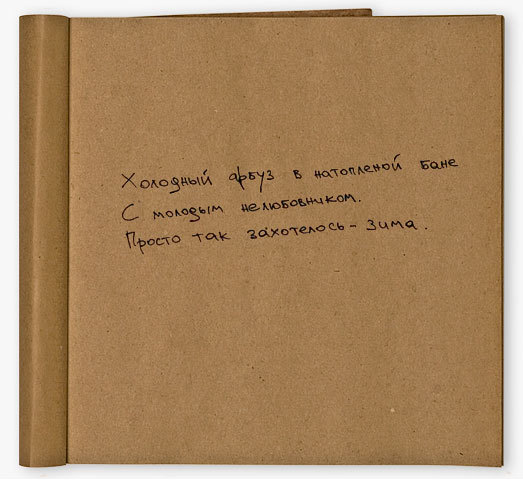 Холодный арбуз в натопленой бане
С молодым нелюбовником.
Просто так захотелось - зима.